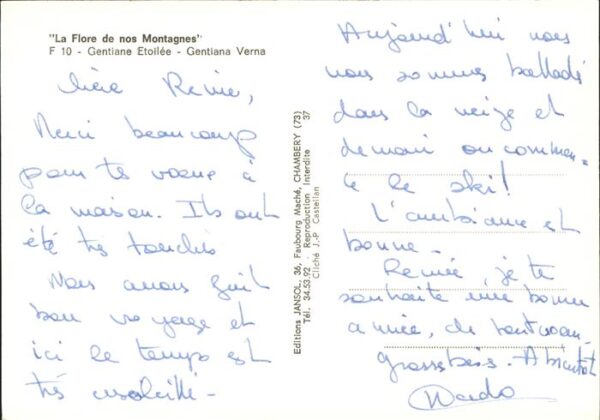 "La Flore de nos Montagnes"
F 10 - Gentiane Etoilée - Gentiana Verna
Chère Renée,
Merci beaucoup
pour tes voeux à
la maison. Ils ont
été très touchés
Nous avons fait
bon voyage et
ici le temps est
très ensoleillé -
Editions JANSOL, 36, Faubourg Maché, CHAMBERY (73)
Tél. 34.53.92 - Reproduction Interdite 37
Cliché J.-P. Castellan
Aujourd'hui nous
nous sommes balladés
dans la neige et
demain on commen=
ce le ski!
L'ambiance est
bonne -
Renée, je te
souhaite une bonne
année, de tout coeur
grosses bises. A bientôt